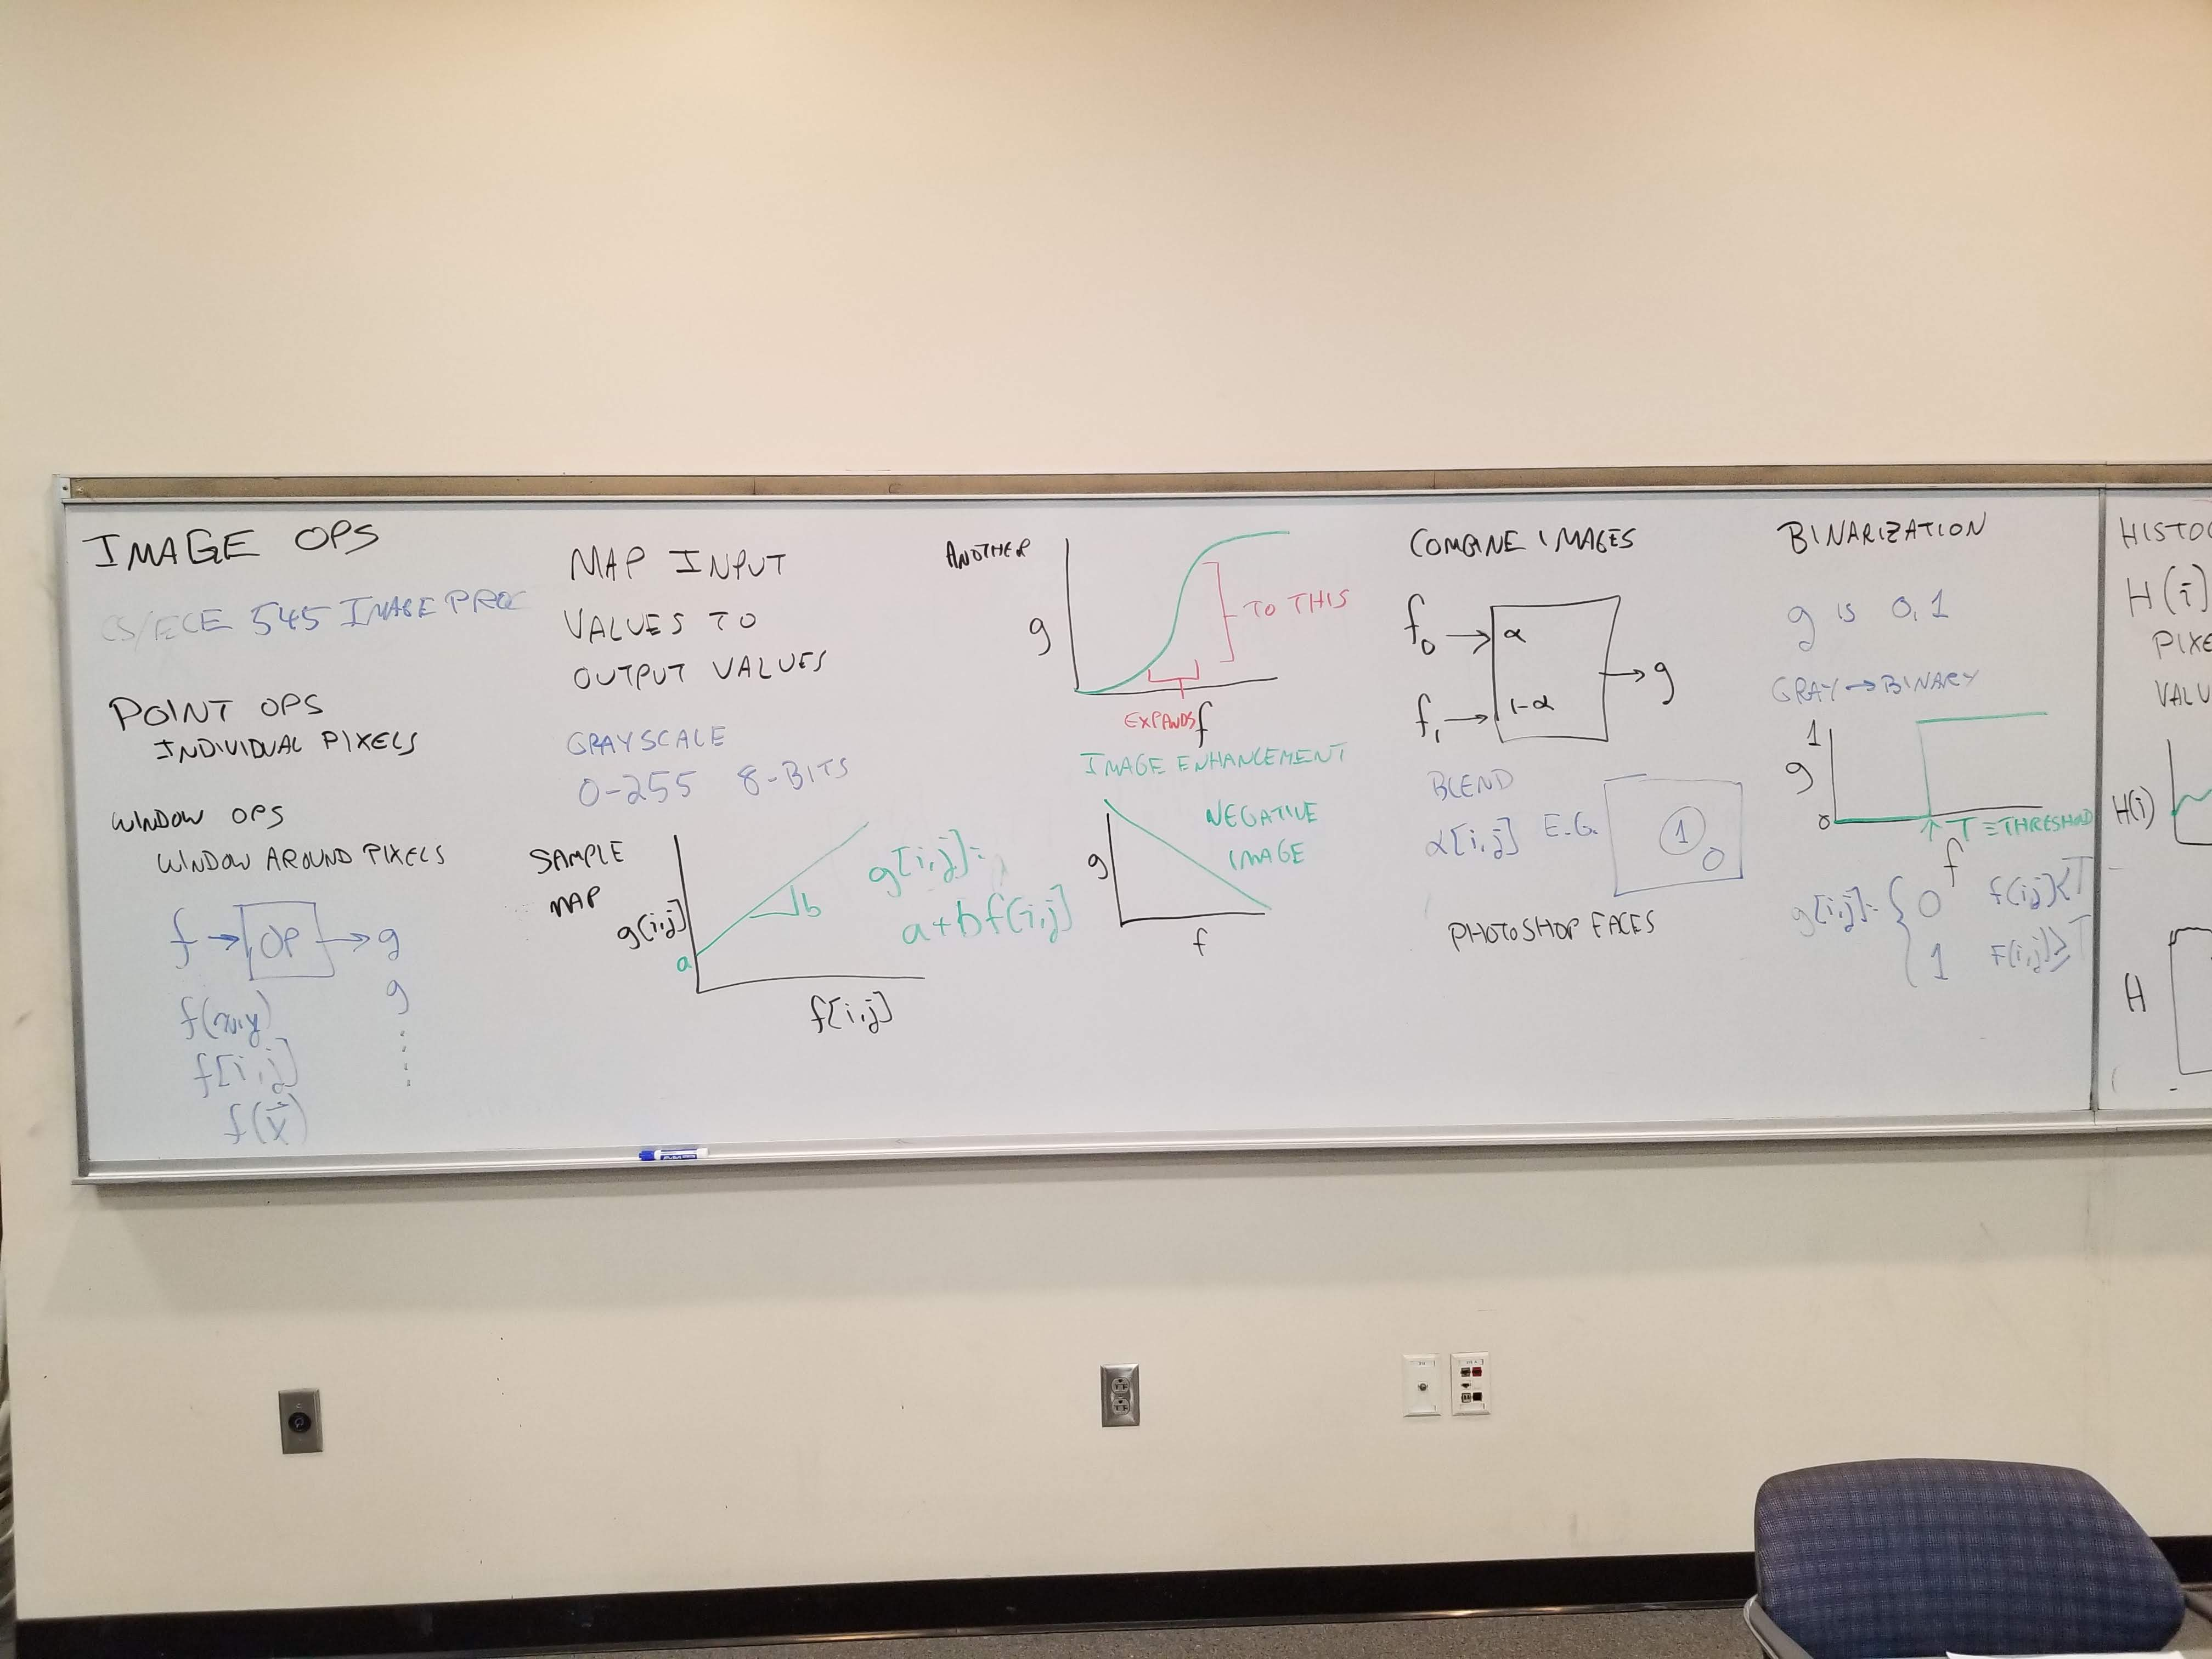 IMAGE OPS
CS/ECE 545 IMAGE PROC
POINT OPS
INDIVIDUAL PIXELS
WINDOW OPS
WINDOW AROUND PIXELS
f → OP → g
f(x,y) g
f[i,j]
f(x⃗)
MAP INPUT
VALUES TO
OUTPUT VALUES
GRAYSCALE
0-255 8-BITS
SAMPLE
MAP
g[i,j]
a
b
g[i,j]=
a+bf[i,j]
f[i,j]
ANOTHER
g
TO THIS
EXPANDS
f
IMAGE ENHANCEMENT
NEGATIVE
IMAGE
g
f
COMBINE IMAGES
f₀ → α
→ g
f₁ → 1-α
BLEND
α[i,j] E.G.
1
0
PHOTOSHOP FACES
BINARIZATION
g is 0,1
GRAY → BINARY
1
g
0
↑ T = THRESHOLD
f
g[i,j]= { 0 f(i,j)<T
1 f(i,j)≥T
HISTOG
H(i)
PIXE
VALU
H(i)
H